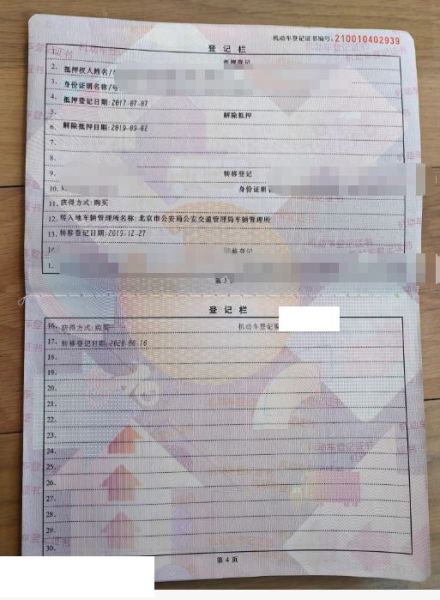 机动车登记证书编号: 210010402939
登 记 栏
1. 抵押登记
2. 抵押权人姓名/
3. 身份证明名称/号
4. 抵押登记日期:2017-07-07
5. 解除抵押
6. 解除抵押日期:2019-09-02
7.
8.
9. 转移登记
10. 身份证明
11. 获得方式:购买
12. 转入地车辆管理所名称:北京市公安局公安交通管理局车辆管理所
13. 转移登记日期:2019-12-27
1. 转移登记
1.
第 3 页
登 记 栏
16. 获得方式:购买 机动车登记
17. 转移登记日期:2020-06-16
18.
19.
20.
21.
22.
23.
24.
25.
26.
27.
28.
29.
30.
第 4 页